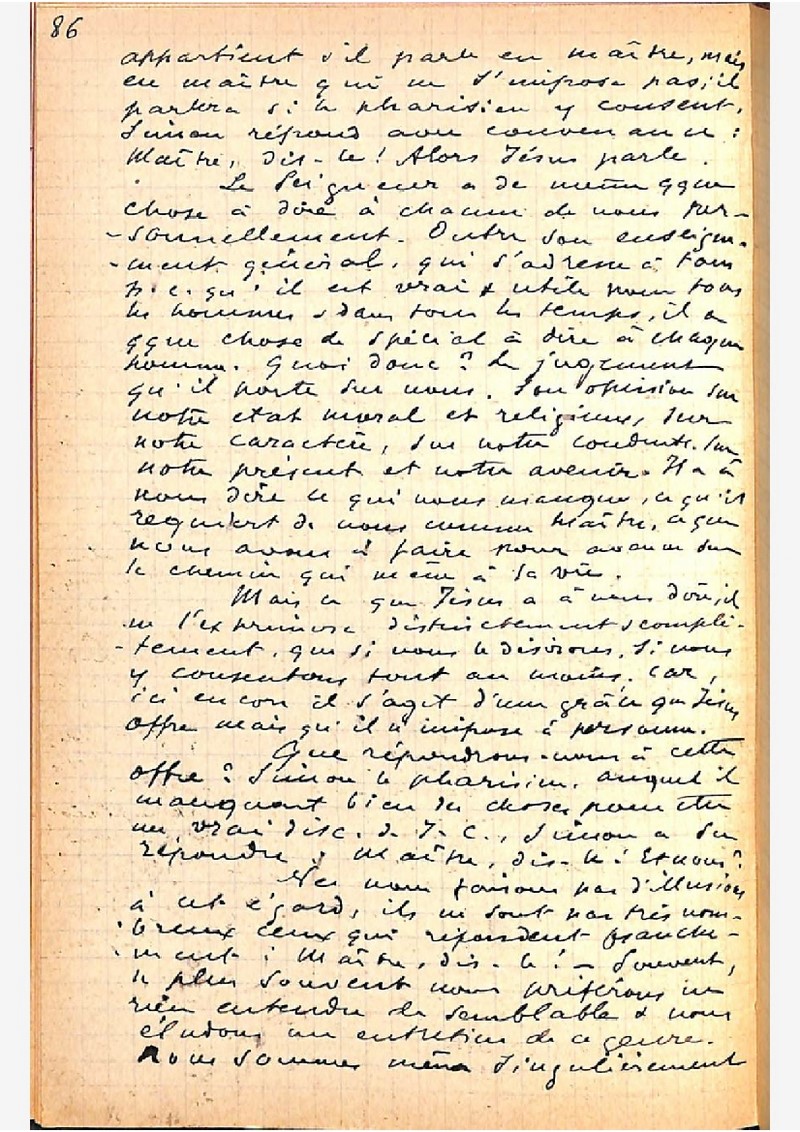 86
appartient s'il parle en maître, mais
en maître qui ne s'impose pas; il
parlera si le pharisien y consent.
Simon répond avec convenance :
Maître, dis-le! Alors Jésus parle.
Le Seigneur a de même qque
chose à dire à chacun de nous per-
-sonnellement. Outre son enseigne-
-ment général, qui s'adresse à tous
p. c. qu'il est vrai & utile pour tous
les hommes & dans tous les temps, il a
qque chose de spécial à dire à chaque
homme. Quoi donc? Le jugement
qu'il porte sur nous. Son opinion sur
notre état moral et religieux, sur
notre caractère, sur notre conduite, sur
notre présent et notre avenir. Il a à
nous dire ce qui nous manque, ce qu'il
requiert de nous comme Maître, ce que
nous avons à faire pour avancer sur
le chemin qui mène à la vie.
Mais ce que Jésus a à nous dire, il
ne l'exprimera distinctement & complè-
-tement, que si nous le désirons, si nous
y consentons tout au moins. Car,
ici encore il s'agit d'une grâce que Jésus
offre mais qu'il n'impose à personne.
Que répondrons-nous à cette
offre? Simon le pharisien, auquel il
manquait bien des choses pour être
un vrai disc. de J. C., Simon a su
répondre : Maître, dis-le! Et nous?
Ne nous faisons pas d'illusions
à cet égard, ils ne sont pas très nom-
-breux ceux qui répondent franche-
-ment : Maître, dis-le! - Souvent,
le plus souvent nous préférons ne
rien entendre de semblable & nous
éludons un entretien de ce genre.
Nous sommes même singulièrement